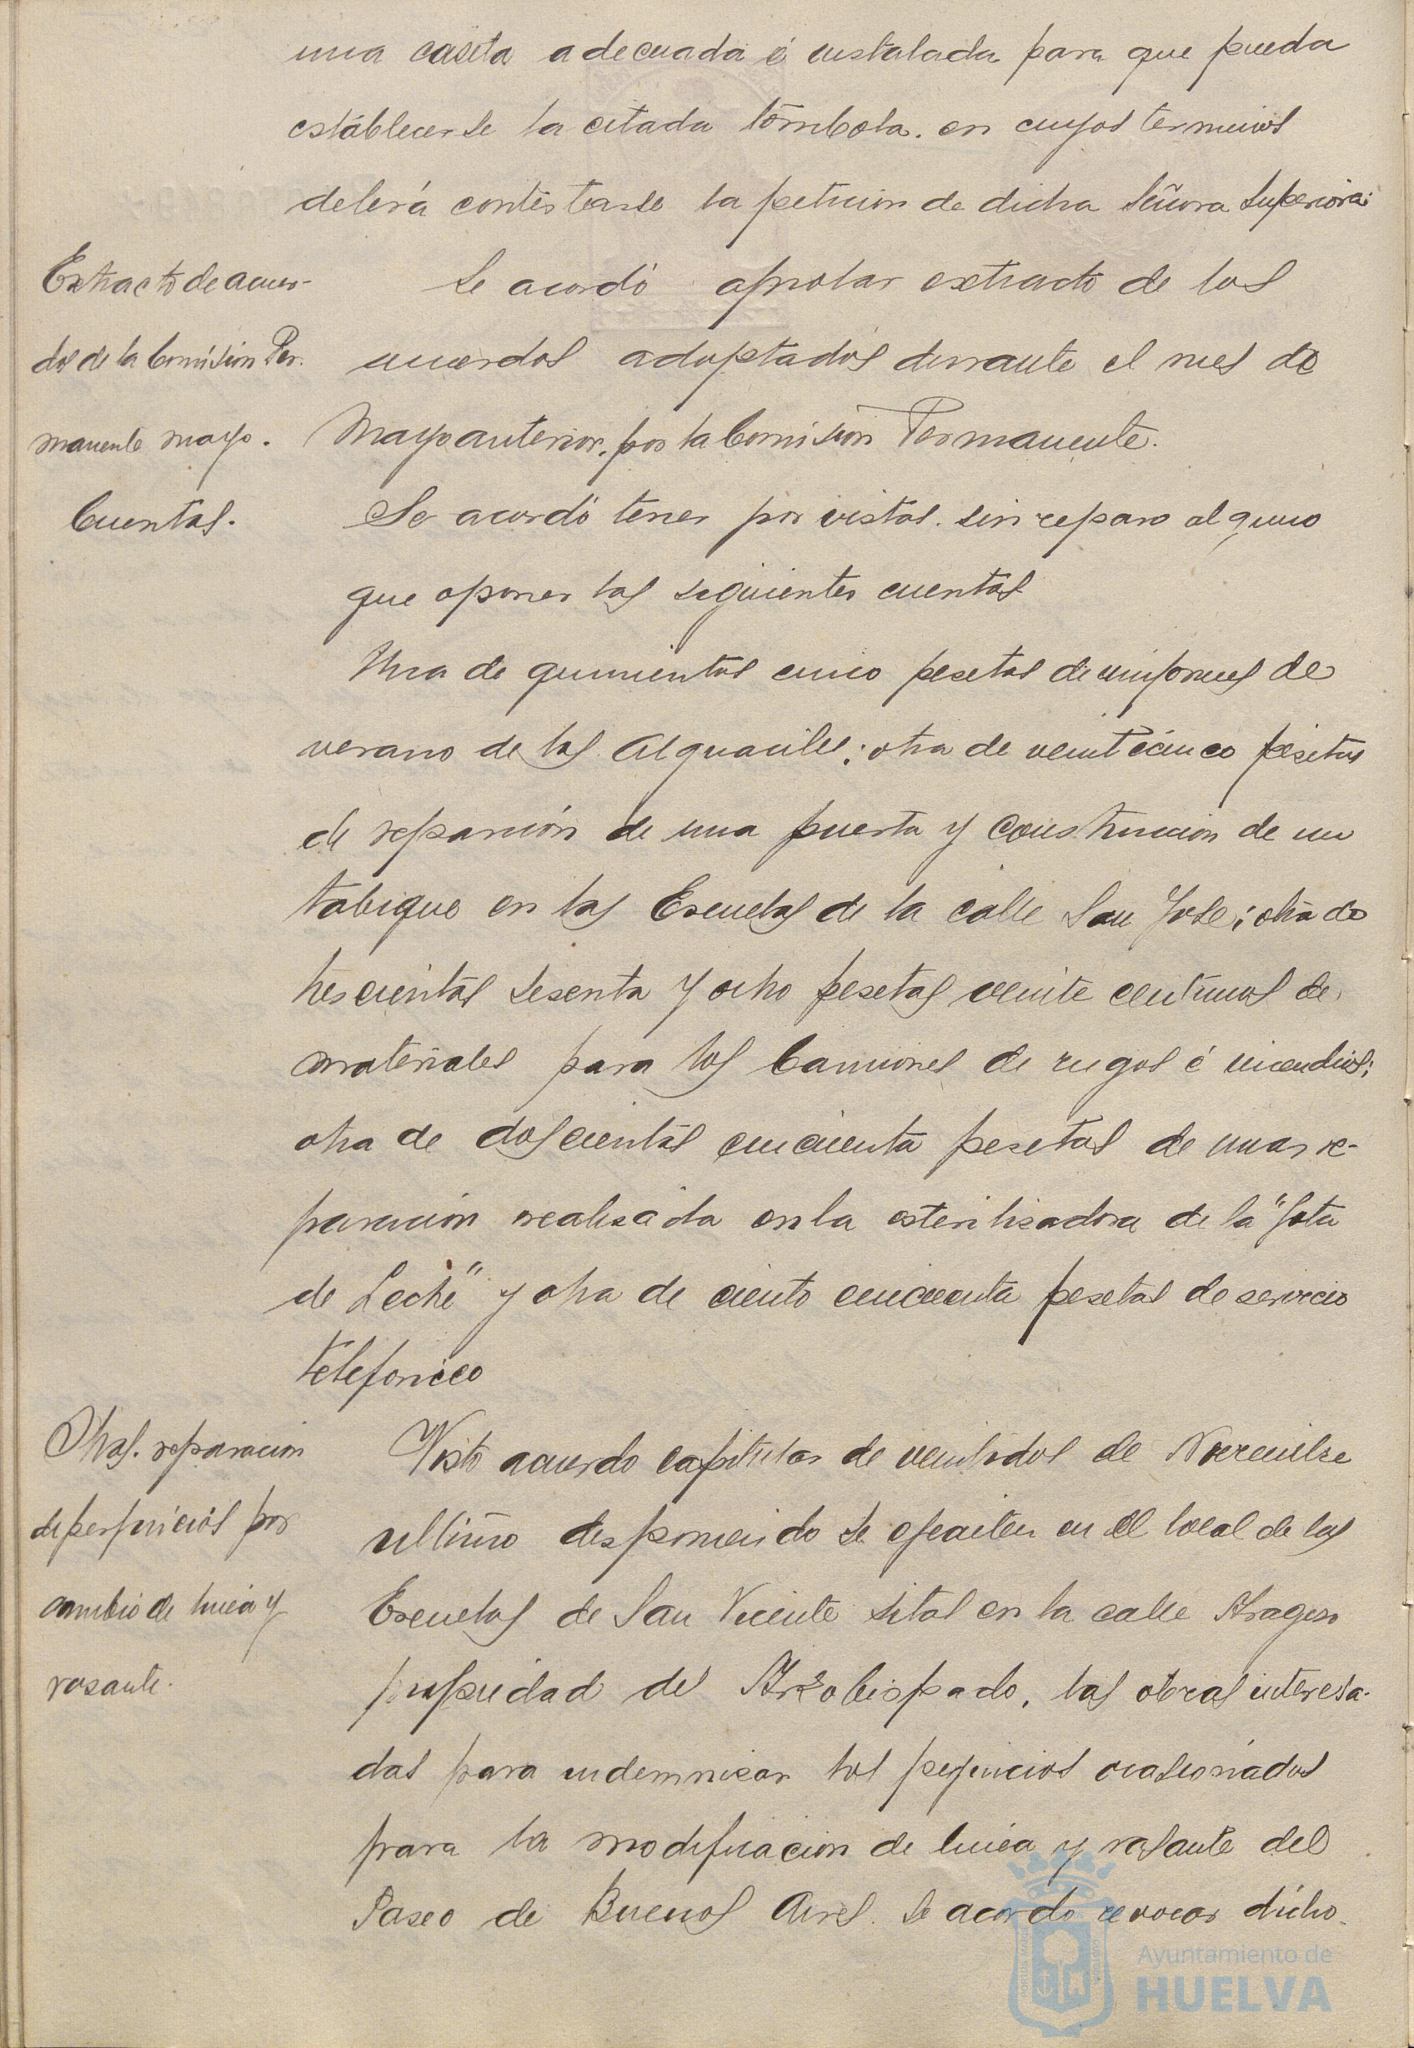 una caseta adecuada é instalada para que pueda
establecerse la citada tómbola. en cuyos terminos
deberá contestarse la peticion de dicha Señora Superiora.
Extracto de acuer-
dos de la Comisión Per.
manente mayo.
Se acordó aprobar extracto de los
acuerdos adoptados durante el mes de
Mayo anterior, por la Comisión Permanente.
Cuentas.
Se acordó tener por vistas. sin reparo alguno
que oponer las siguientes cuentas
Una de quinientas cinco pesetas de uniformes de
verano de los Alguaciles; otra de veinticinco pesetas
de reparación de una puerta y construccion de un
tabique en las Escuelas de la calle San José; otra de
trescientas sesenta y ocho pesetas veinte centimos de
materiales para los Camiones de riegos é incendios;
otra de doscientas cincuenta pesetas de una re-
paración realizada en la esterilizadora de la "Gota
de Leche" y otra de ciento cincuenta pesetas de servicio
telefonico
Obras. reparacion
de perjuicios por
cambio de linea y
rasante.
Visto acuerdo capitular de ventidos de Noviembre
ultimo disponiendo se efectuen en el local de las
Escuelas de San Vicente sitas en la calle Aragon
propiedad del Arzobispado, las obras interesa-
das para indemnizar los perjuicios ocasionados
para la modificacion de linea y rasante del
Paseo de Buenos Aires. Se acordó revocar dicho
Ayuntamiento de
HUELVA